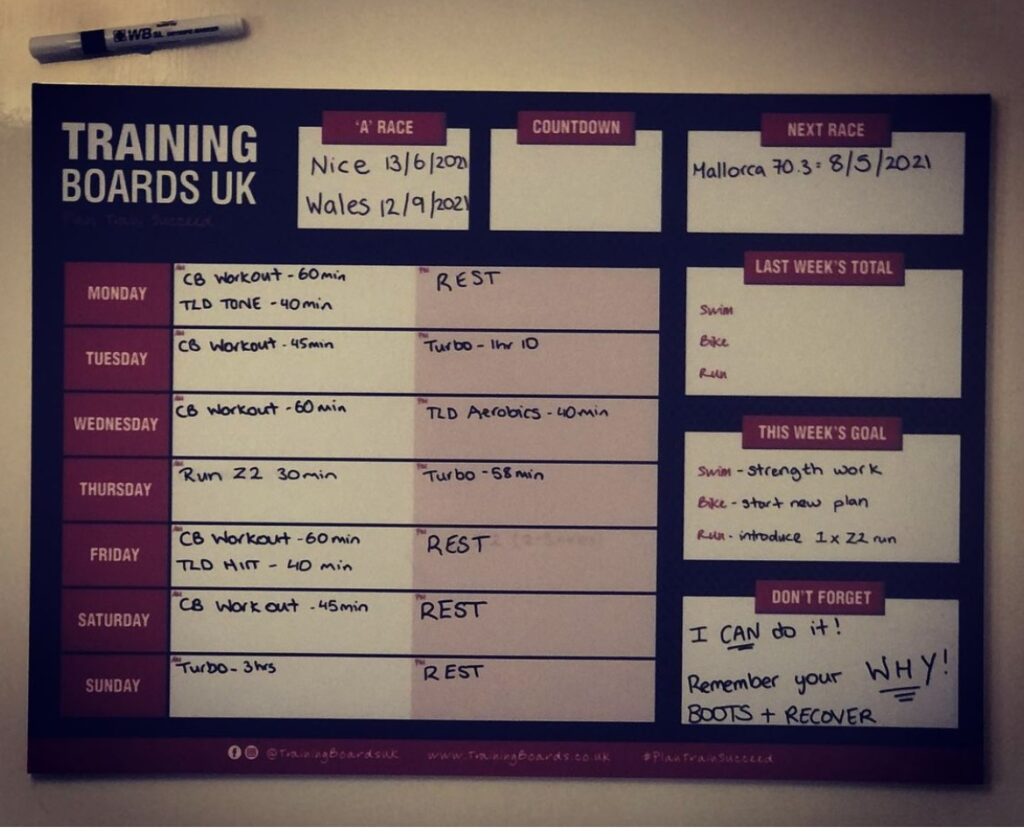 WB
TRAINING
BOARDS UK
Plan Train Succeed
'A' RACE
Nice 13/6/2021
Wales 12/9/2021
COUNTDOWN
NEXT RACE
Mallorca 70.3: 8/5/2021
MONDAY
AM
CB Workout - 60min
TLD TONE - 40min
PM
REST
TUESDAY
AM
CB Workout - 45min
PM
Turbo - 1hr 10
WEDNESDAY
AM
CB Workout - 60min
PM
TLD Aerobics - 40min
THURSDAY
AM
Run Z2 30min
PM
Turbo - 58min
FRIDAY
AM
CB Workout - 60min
TLD HIIT - 40 min
PM
REST
SATURDAY
AM
CB Workout - 45min
PM
REST
SUNDAY
AM
Turbo - 3hrs
PM
REST
LAST WEEK'S TOTAL
Swim
Bike
Run
THIS WEEK'S GOAL
Swim - strength work
Bike - start new plan
Run - introduce 1 x Z2 run
DON'T FORGET
I CAN do it!
Remember your WHY!
BOOTS + RECOVER
@TrainingBoardsuk www.TrainingBoards.co.uk #PlanTrainSucceed